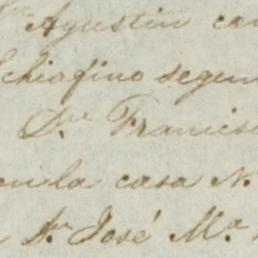 Agustin
Schiafino segun
Dn Francis
en la casa N.
Dn José Ma.